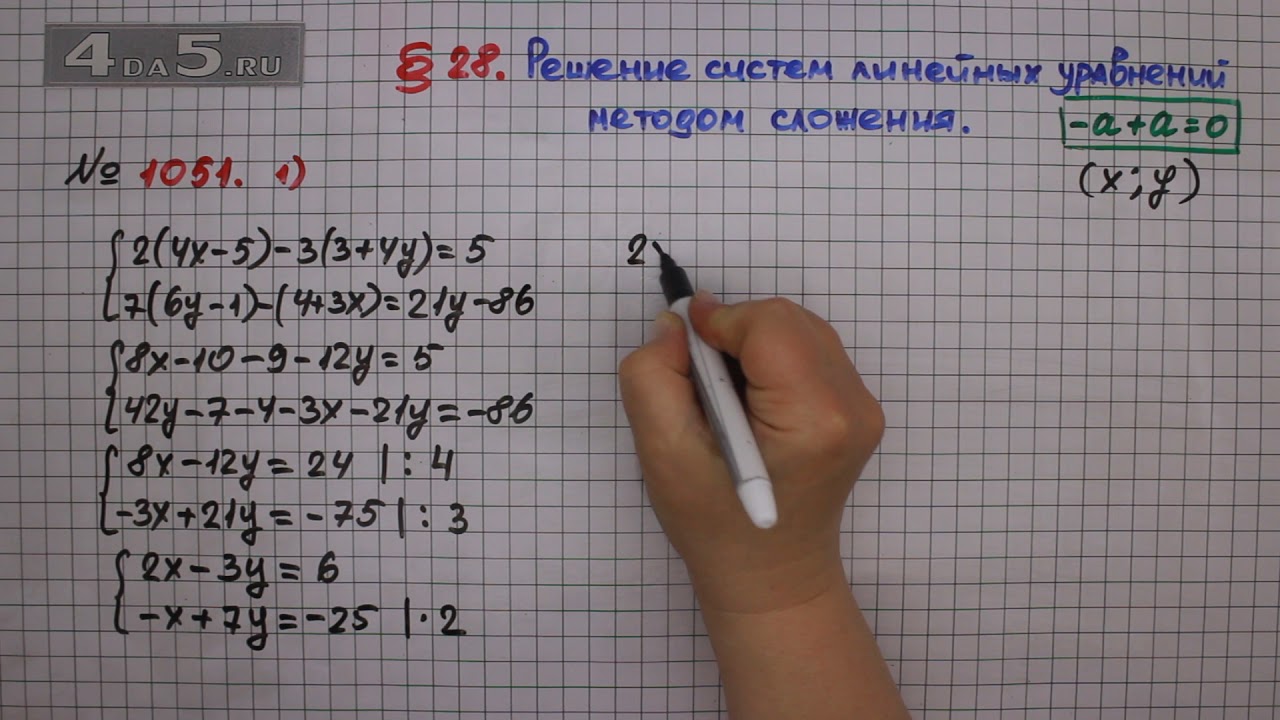 4DA5.RU
§ 28. Решение систем линейных уравнений
методом сложения.
-a+a=0
(x;y)
№ 1051. 1)
2(4x-5)-3(3+4y)=5
7(6y-1)-(4+3x)=21y-86
8x-10-9-12y=5
42y-7-4-3x-21y=-86
8x-12y=24 |:4
-3x+21y=-75 |:3
2x-3y=6
-x+7y=-25 |·2
2